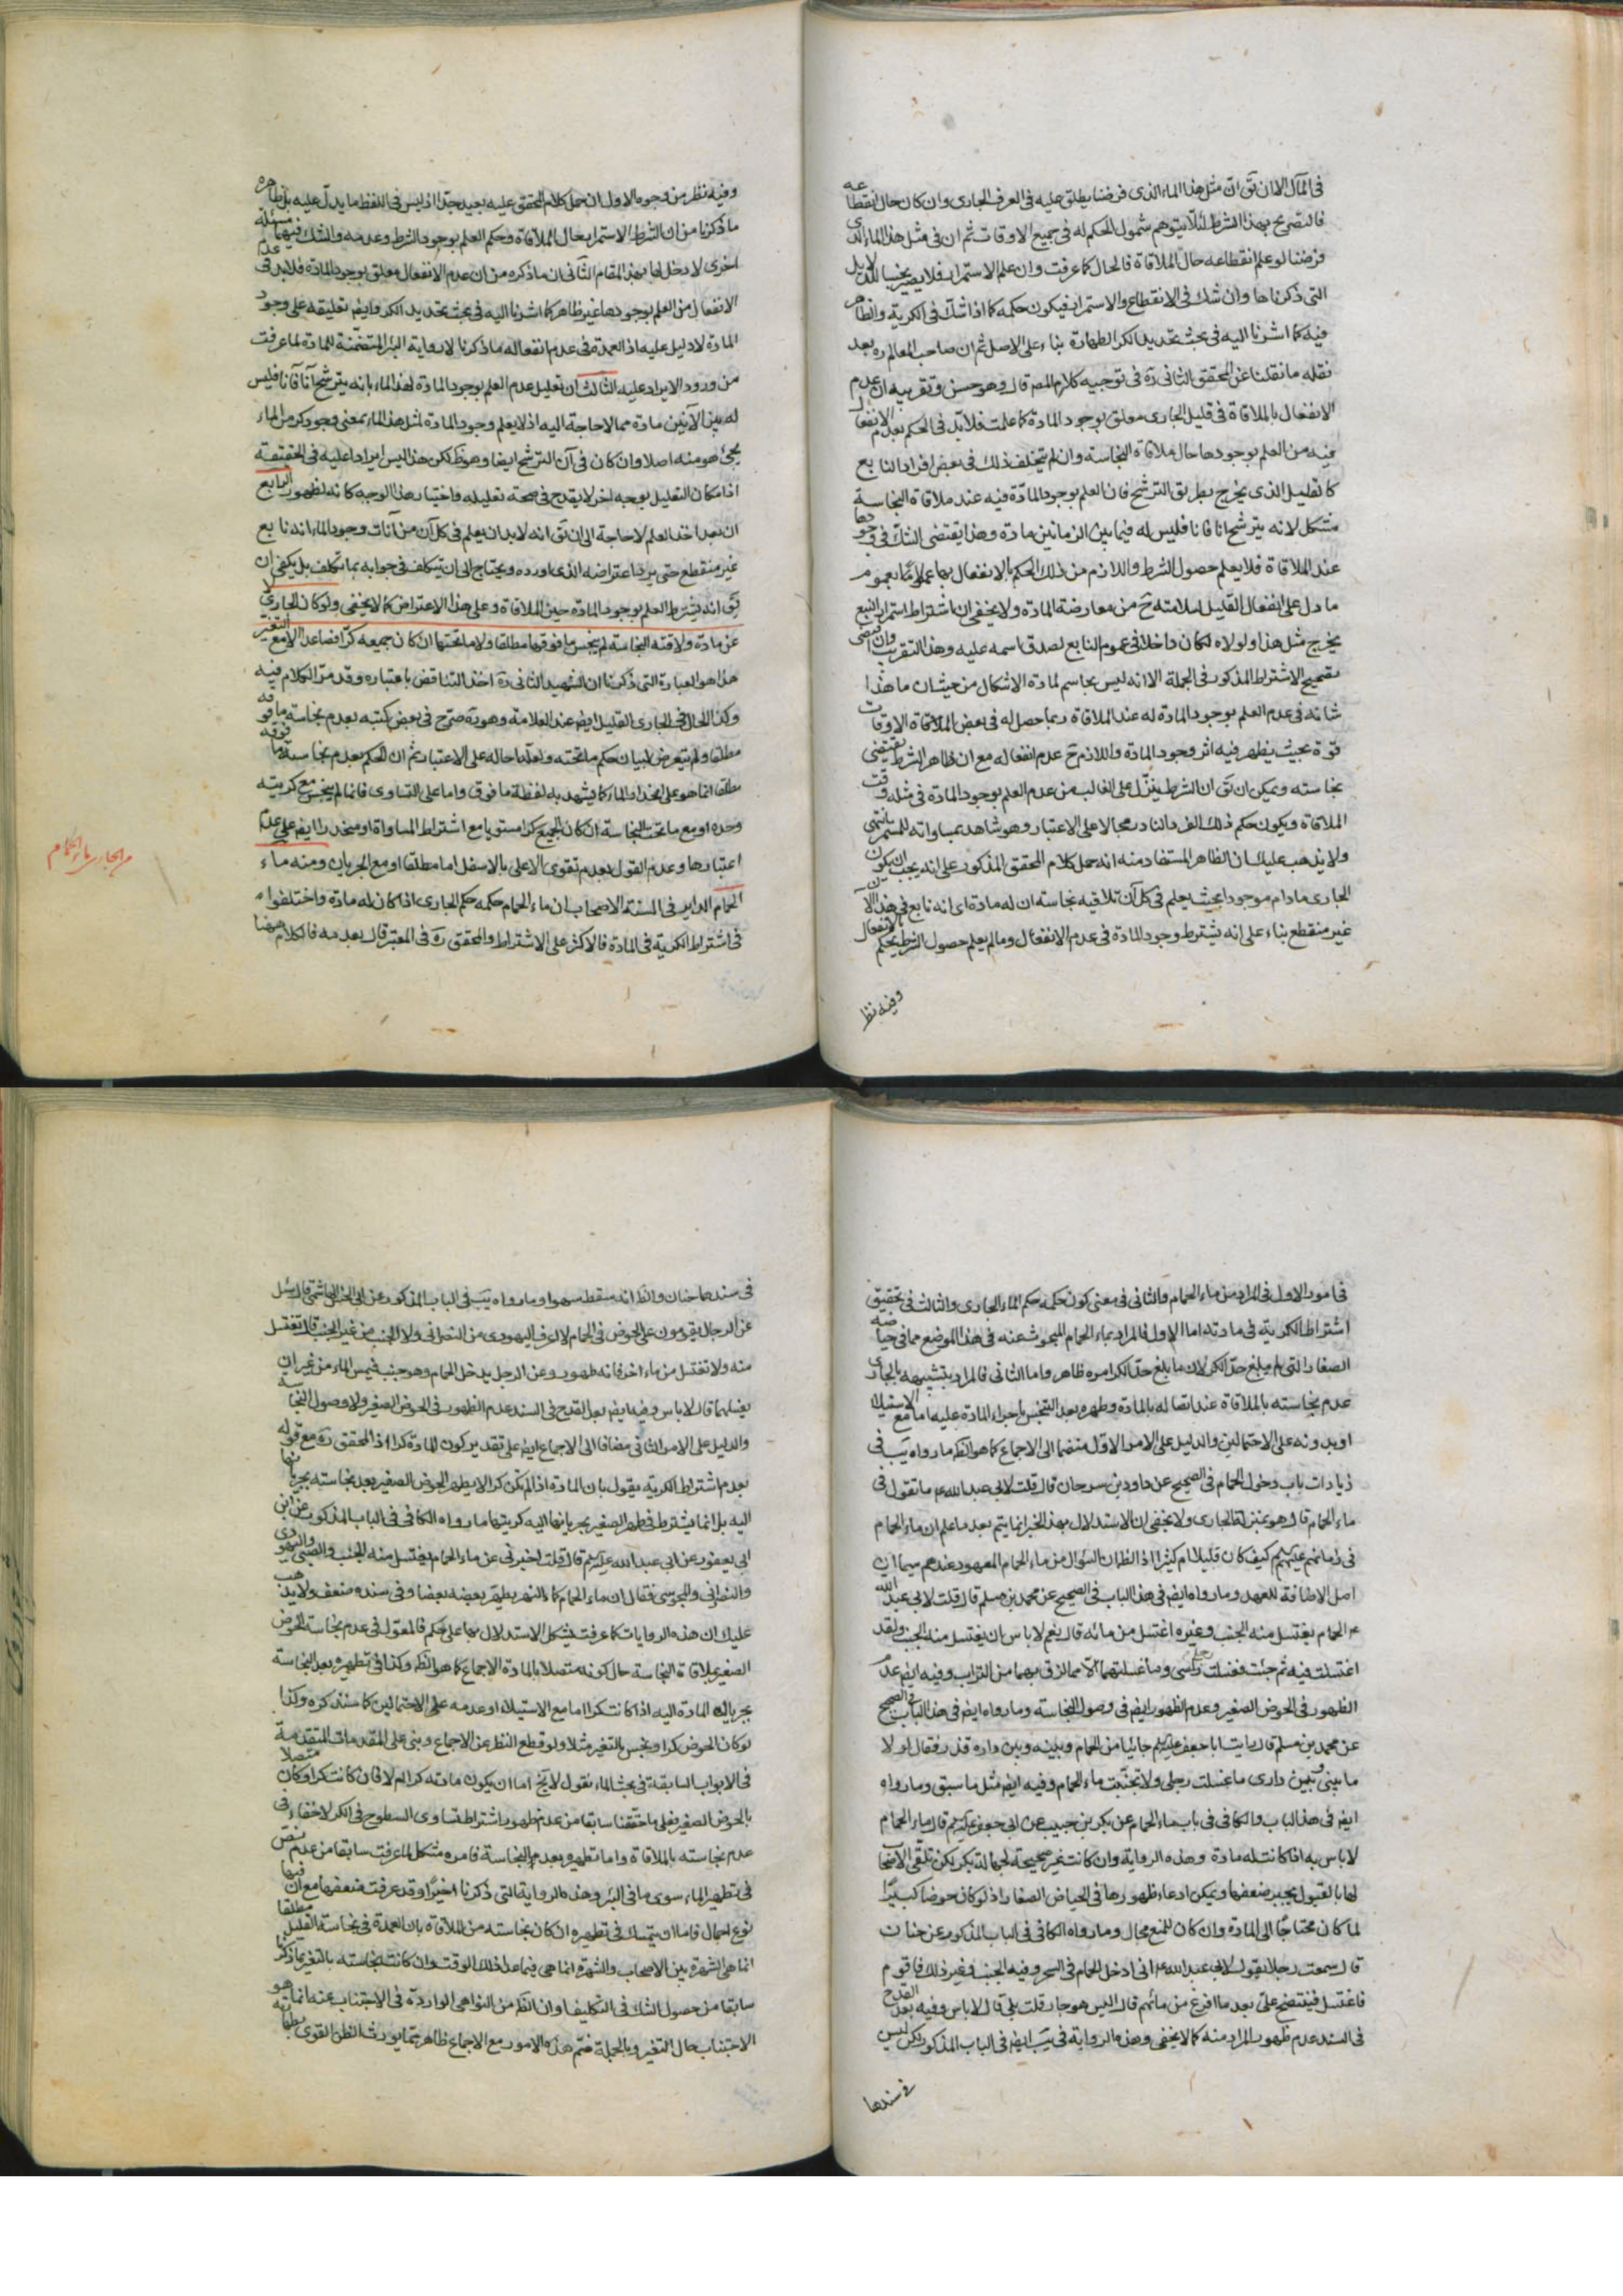 في المآل الا ان يق ان مثل هذا الماء الذي فرضنا يطلق عليه في العرف الجاري وان كان حال انقطاعه
فالتصريح بهذا الشرط لئلا يتوهم شمول الحكم له في جميع الاوقات ثم ان في مثل هذا الماء الذي
فرضنا لو علم انقطاعه حال الملاقاة فالحال كما عرفت وان علم الاستمرار فلا يصير نجسا للدلايل
التي ذكرناها وان شك في الانقطاع والاستمرار فيكون حكمه كما اذا شك في الكرية والظاهر
فيه كما اشرنا اليه في بحث تحديد الكر الطهارة بناء على الاصل ثم ان صاحب المعالم ره بعد
نقله ما نقلنا عن المحقق الثاني ره في توجيه كلام المصم قال وهو حسن وتقريبه ان عدم
الانفعال بالملاقاة في قليل الجاري معلق بوجود المادة كما علمت فلا بد في الحكم بعدم الانفعال
فيه من العلم بوجودها حال ملاقاة النجاسة وان لم يتخلف ذلك في بعض افراد النابع
كالقليل الذي يخرج بطريق الترشح فان العلم بوجود المادة فيه عند ملاقاة النجاسة
مشكل لانه يترشح انا فانا فليس له فيما بين الزمانين مادة وهذا يقتضي الشك في وجودها
عند الملاقاة فلا يعلم حصول الشرط واللازم من ذلك الحكم بالانفعال بها عملا بعموم
ما دل على انفعال القليل لسلامته ح من معارضة المادة ولا يخفى ان اشتراط استمرار النبع
يخرج مثل هذا ولولاه لكان داخلا في عموم النابع لصدق اسمه عليه وهذا التقريب وان اقتضى
تصحيح الاشتراط المذكور في الجملة الا انه ليس بحاسم لمادة الاشكال من حيث ان ما هذا
شانه في عدم العلم بوجود المادة له عند الملاقاة ربما حصل له في بعض الاوقات
قوة بحيث يظهر فيه اثر وجود المادة واللازم ح عدم انفعاله مع ان ظاهر الشرط يقتضي
نجاسته ويمكن ان يق ان الشرط ينزل على الغالب من عدم العلم بوجود المادة في مثله وقت
الملاقاة ويكون حكم ذلك الفرد النادر محالا على الاعتبار وهو شاهد بمساواته للمستمر انتهى
ولا يذهب عليك ان الظاهر المستفاد منه انه حمل كلام المحقق المذكور على انه يجب ان يكون
الجاري ما دام موجودا بحيث يعلم في كل آن تلاقيه نجاسة ان له مادة اي انه نابع في هذا الآن
غير منقطع بناء على انه يشترط وجود المادة في عدم الانفعال وما لم يعلم حصول الشرط يحكم بالانفعال
وفيه نظر
وفيه نظر من وجوه الاول ان حمل كلام المحقق عليه بعيد جدا اذ ليس في اللفظ ما يدل عليه بل ظاهره
ما ذكرنا من ان الشرط الاستمرار حال الملاقاة وحكم العلم بوجود الشرط وعدمه والشك فيهما مسئلة
اخرى لا دخل لها بهذا المقام الثاني ان ما ذكره من ان عدم الانفعال معلق بوجود المادة فلا بد في عدم
الانفعال من العلم بوجودها غير ظاهر كما اشرنا اليه في بحث تحديد الكر وايضا تعليقه على وجود
المادة لا دليل عليه اذ العمدة في عدم انفعاله ما ذكرنا لا رواية البئر المتضمنة للمادة لما عرفت
من ورود الايراد عليه الثالث ان تعليل عدم العلم بوجود المادة لهذا الماء بانه يترشح آنا فآنا فليس
له بين الآنين مادة مما لا حاجة اليه اذ لا يعلم وجود المادة لمثل هذا الماء بمعنى وجود كر من الماء
يجئ هو منه اصلا وان كان في آن الترشح ايضا وهو ظ لكن هذا ليس ايرادا عليه في الحقيقة
اذ امكان التعليل بوجه اخر لا يقدح في صحة تعليله واختيار هذا الوجه كانه لظهوره الرابع
ان بعد اخذ العلم لا حاجة الى ان يق انه لا بد ان يعلم في كل آن من آنات وجود الماء انه نابع
غير منقطع حتى يرد ما اعتراضه الذي اورده ويحتاج الى ان يتكلف في جوابه بما تكلف بل يكفي ان
يق انه يشترط العلم بوجود المادة حين الملاقاة وعلى هذا الاعتراض كما لا يخفى ولو كان الجاري لا
عن مادة ولاقته النجاسة لم ينجس ما فوقها مطلقا ولا ما تحتها ان كان جميعه كرا فصاعدا الا مع التغير
هذا هو العبارة التي ذكرنا ان الشهيد الثاني ره اخذ التناقض باعتباره وقد مر الكلام فيه
وكذا الحال في الجاري القليل ايضا عند العلامة وهو ره صرح في بعض كتبه بعدم نجاسة ما فوقه
مطلقا ولم يتعرض لبيان حكم ما تحته ولعله احاله على الاعتبار ثم ان الحكم بعدم نجاسة ما فوقه
مطلقا انما هو على انحدار الماء كما يشهد به لفظة ما فوق واما على التساوي فانما لم ينجس مع كريته
وحده او مع ما تحت النجاسة ان كان الجميع كرا مستويا مع اشتراط المساواة او منحدرا ايضا على عدم
اعتبارها وعدم القول بعدم تقوي الاعلى بالاسفل اما مطلقا او مع الجريان ومنه ماء
الحمام الداير في السنة الاصحاب ان ماء الحمام حكمه حكم الجاري اذا كان له مادة واختلفوا
في اشتراط الكرية في المادة فالاكثر على الاشتراط والمحقق ره في المعتبر قال بعدمه فالكلام ههنا
من الجاري ماء الحمام
في امور الاول في المراد من ماء الحمام والثاني في معنى كون حكمه حكم الماء الجاري والثالث في تحقيق
اشتراط الكرية في مادته اما الاول فالمراد بماء الحمام المبحوث عنه في هذا الموضع هما في حياضه
الصغار التي لم يبلغ حد الكر لان ما بلغ حد الكر امره ظاهر واما الثاني فالمراد بتشبيهه بالجاري
عدم نجاسته بالملاقاة عند اتصاله بالمادة وطهره بعد التنجس باجراء المادة عليه اما مع الاستيلاء
او بدونه على الاحتمالين والدليل على الامر الاول منضما الى الاجماع كما هو الظ ما رواه يب في
زيادات باب دخول الحمام في الصحيح عن داود بن سرحان قال قلت لابي عبد الله ع ما تقول في
ماء الحمام قال هو بمنزلة الجاري ولا يخفى ان الاستدلال بهذا الخبر انما يتم بعد ما علم ان ماء الحمام
في زمانهم عليهم كيف كان قليلا ام كثيرا اذ الظ ان السؤال من ماء الحمام المعهود عندهم سيما ان
اصل الاضافة للعهد وما رواه ايضا في هذا الباب في الصحيح عن محمد بن مسلم قال قلت لابي عبد الله
ع الحمام يغتسل منه الجنب وغيره اغتسل من مائه قال نعم لا باس ان يغتسل منه الجنب ولقد
اغتسلت فيه ثم جئت فغسلت رجلي وما غسلتهما الا مما لزق بهما من التراب وفيه ايضا عدم
الظهور في الحوض الصغير وعدم الظهور ايضا في وصول النجاسة وما رواه ايضا في هذا الباب في الصحيح
عن محمد بن مسلم قال رايت ابا جعفر عليه جائيا من الحمام وبينه وبين داره قذر فقال لو لا
ما بيني وبين داري ما غسلت رجلي ولا تجنبت ماء الحمام وفيه ايضا مثل ما سبق وما رواه
ايضا في هذا الباب والكافي في باب ماء الحمام عن بكر بن حبيب عن ابي جعفر عليه قال ماء الحمام
لا باس به اذا كانت له مادة وهذه الرواية وان كانت غير صحيحة لجهالة بكر لكن تلقي الاصحاب
لها بالقبول يجبر ضعفها ويمكن ادعاء ظهورها في الحياض الصغار اذ لو كان حوضا كبيرا
لما كان محتاجا الى المادة وان كان للمنع مجال وما رواه الكافي في الباب المذكور عن حنان
قال سمعت رجلا يقول لابي عبد الله ع اني ادخل الحمام في السحر وفيه الجنب وغير ذلك فاقوم
فاغتسل فينتضح علي بعد ما افرغ من مائهم قال اليس هو جار قلت بلى قال لا باس وفيه بعد القدح
في السند عدم ظهور المراد منه كما لا يخفى وهذه الرواية في يب ايضا في الباب المذكور لكن ليس
في سندها
في سندها حنان والظ انه سقط سهوا وما رواه يب في الباب المذكور عن ابي الحسن الهاشمي قال سئل
عن الرجال يقومون على الحوض في الحمام لا اعرف اليهودي من النصراني ولا الجنب من غير الجنب قال تغتسل
منه ولا تغتسل من ماء اخر فانه طهور وعن الرجل يدخل الحمام وهو جنب فيمس الماء من غير ان
يغسلهما قال لا باس وفيه ايضا بعد القدح في السند عدم الظهور في الحوض الصغير ولا وصول النجاسة
والدليل على الامر الثاني مضافا الى الاجماع ايضا على تقدير كون المادة كرا اذ المحقق ره مع قوله
بعدم اشتراط الكرية يقول بان المادة اذا لم تكن كرا لا يطهر الحوض الصغير بعد نجاسته بجريانها
اليه بل انما يشترط في طهر الصغير بجريانها اليه كريتها ما رواه الكافي في الباب المذكور عن ابن
ابي يعفور عن ابي عبد الله عليه قال قلت اخبرني عن ماء الحمام يغتسل منه الجنب والصبي واليهودي
والنصراني والمجوسي فقال ان ماء الحمام كماء النهر يطهر بعضه بعضا وفي سنده ضعف ولا يذهب
عليك ان هذه الروايات كما عرفت يشكل الاستدلال بها على حكم فالمعول في عدم نجاسة الحوض
الصغير بملاقاة النجاسة حال كونه متصلا بالمادة الاجماع كما هو الظ وكذا في تطهيره بعد النجاسة
بجريان المادة اليه اذا كانت كرا اما مع الاستيلاء او عدمه على الاحتمالين كما سنذكره وكذا
لو كان الحوض كرا وينجس بالتغير مثلا ولو قطع النظر عن الاجماع وبني على المقدمات المتقدمة
في الابواب السابقة في بحث الماء نقول لا يخ اما ان يكون مادته كرا ام لا فان كانت كرا وكان متصلا
بالحوض الصغير فعلى ما حققنا سابقا من عدم ظهور اشتراط تساوي السطوح في الكر لا خفاء في
عدم نجاسته بالملاقاة واما تطهيره بعدم النجاسة فامره مشكل لما عرفت سابقا من عدم نص
في تطهير الماء سوى ما في البئر وهذه الرواية التي ذكرنا اخيرا وقد عرفت ضعفها مع ان فيها
نوع اجمال فاما ان يتمسك في تطهيره ان كان نجاسته من الملاقاة بان العمدة في نجاسة القليل مطلقا
انما هي الشهرة بين الاصحاب والشهرة انما هي فيما عدا ذلك الوقت وان كانت نجاسته بالتغير بما ذكرنا
سابقا من حصول الشك في التكليف وان الظ من النواهي الواردة في الاجتناب عنه انما هو
الاجتناب حال التغير وبالجملة ضم هذه الامور مع الاجماع ظاهر مما يورث الظن القوي بطهارته